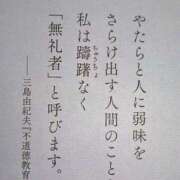 やたらと人に弱味を
さらけ出す人間のこと
私は躊躇なく
ちゅうちょ
「無礼者」と呼びます。
──三島由紀夫『不道徳教育